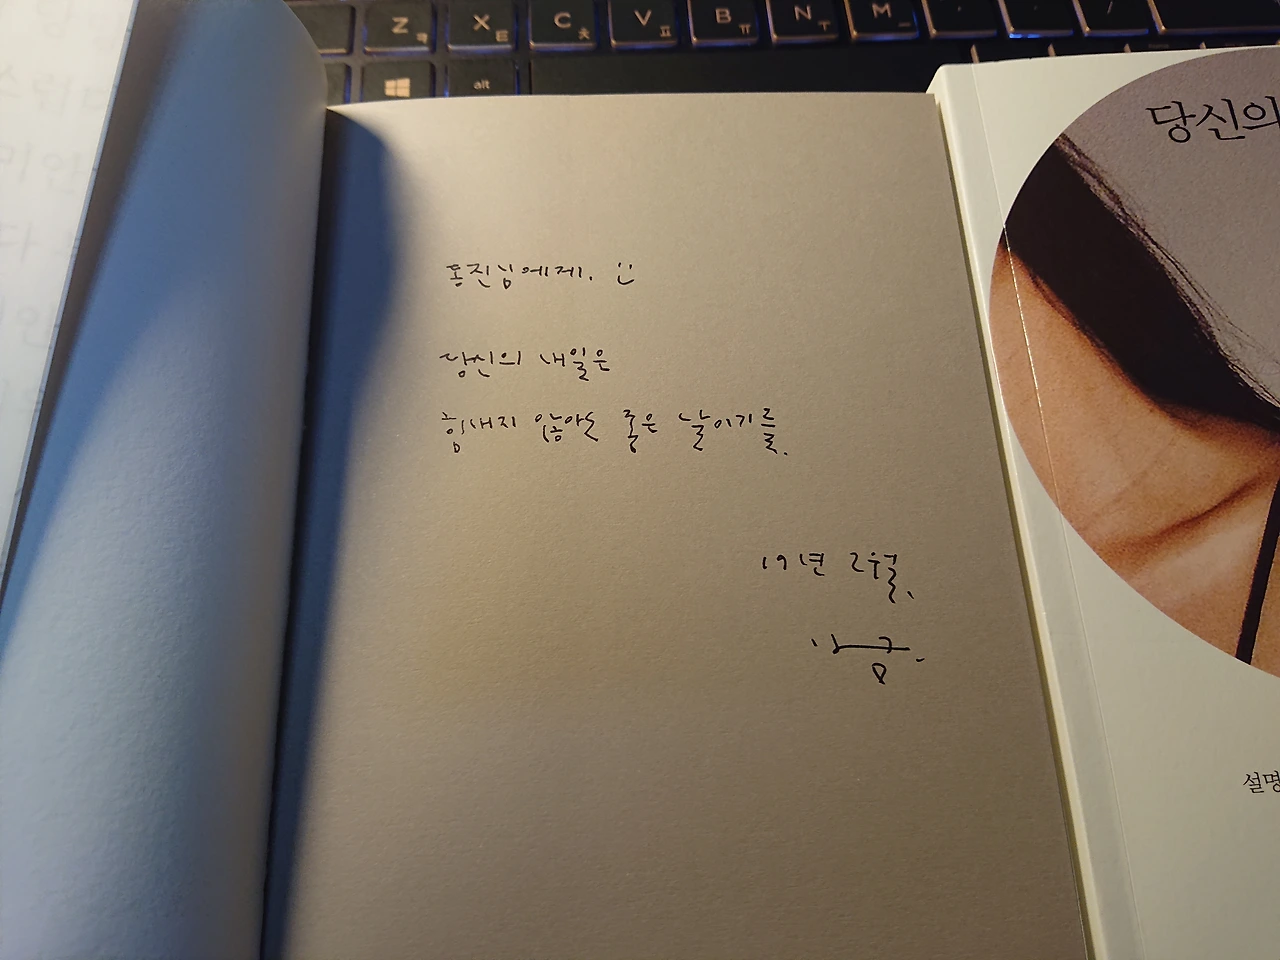 Z ㅋ
X ㅌ
C ㅊ
V ㅍ
B ㅠ
N ㅜ
M ㅡ
alt
동진님에게. :)
당신의 내일은
힘내지 않아도 좋은 날이기를.
19년 2월.
당신의
설명